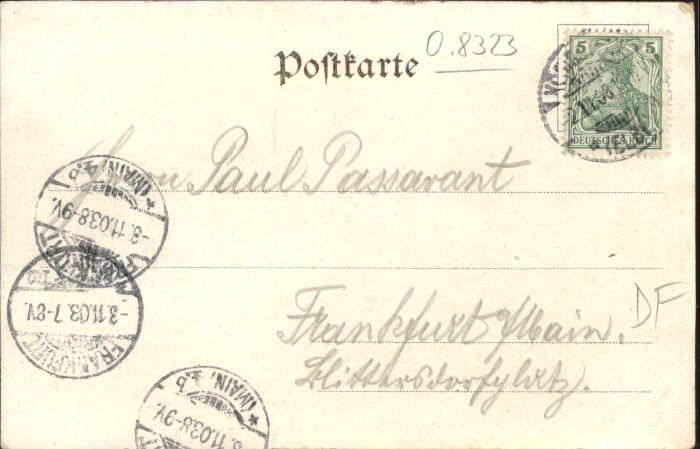 O.8323
Postkarte
5 5
DEUTSCHES REICH
Herrn Paul Passavant
Frankfurt a/Main.
Blittersdorfplatz.
DF
(MAIN) 4.b
-3.11.03.8-9V.
FRANKFURT
-3.11.03.7-8V.
FRANKFURT
(MAIN) 4.b
3.11.03.8-9V.